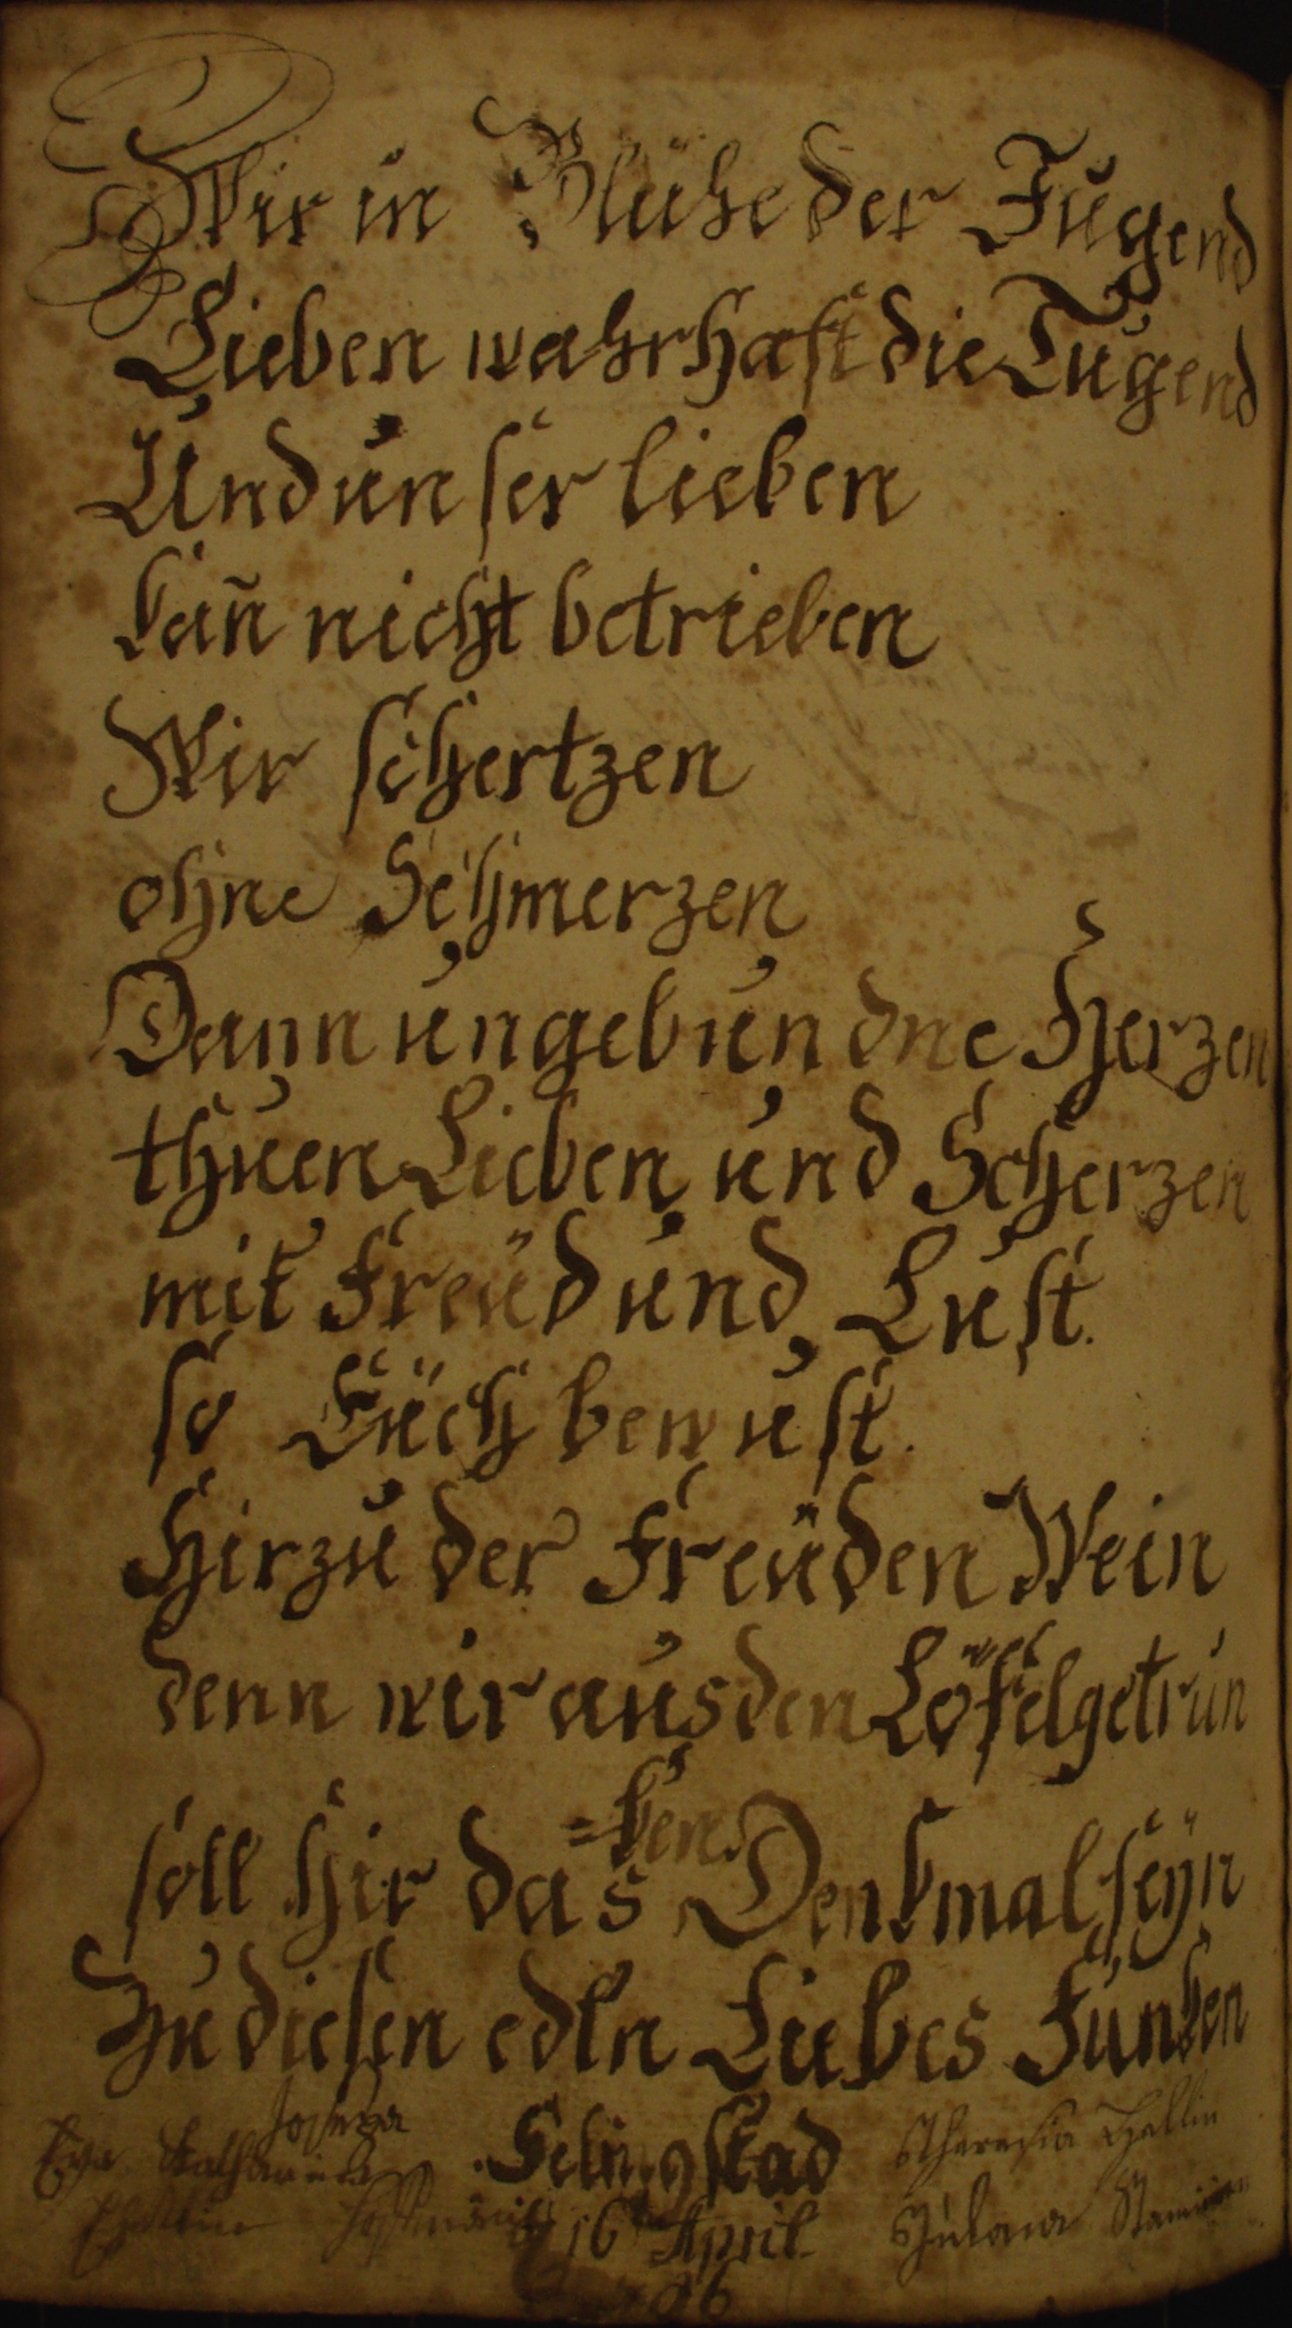 Wir in Blühe der Jugend
Lieben wahrhaft die Tugend
Und unser lieben
kan̄ nicht betrieben
Wir schertzen
ohne Schmerzen
Dann ungebundne Herzen
thuen Lieben und Scherzen
mit Freüd und Lust.
so Eüch bewust.
Hirzu der Freüden Wein
denn wir aus den Löfel getrun
=ken
soll hir das Denkmal seÿn
Zu diesen edln Liebes Funken
Josepha
Eva Katharina Selingstad Theresia
Hoffmänin 16t April Juliana